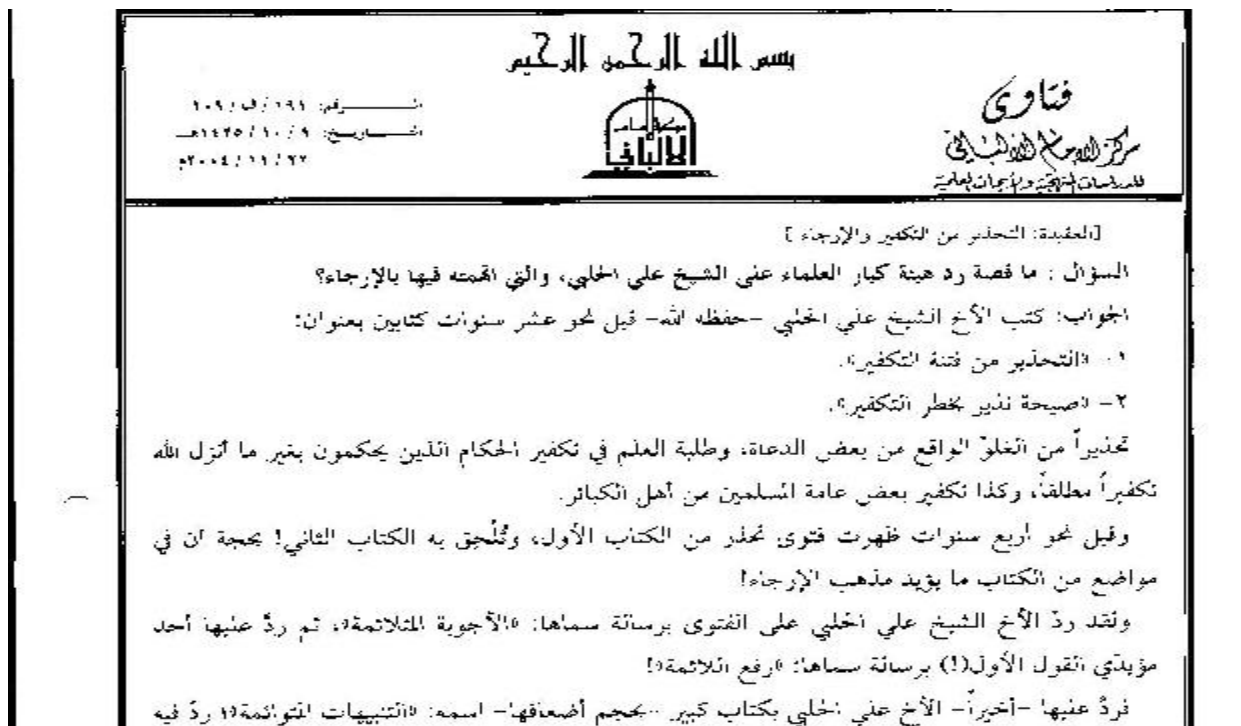 بسم الله الرحمن الرحيم
فتاوى
مركز الإمام الألباني
للدراسات المنهجية والأبحاث العلمية
الألباني
الـــرقم: ١٩١/ف/١٠٩
التـــاريخ: ٩/١٠/١٤٢٥هـــ
٢٢/١١/٢٠٠٤م
[العقيدة: التحذير من التكفير والإرجاء]
السؤال : ما قصة رد هيئة كبار العلماء على الشيخ علي الحلبي، والتي اتهمته فيها بالإرجاء؟
الجواب: كتب الأخ الشيخ علي الحلبي –حفظه الله– قبل نحو عشر سنوات كتابين بعنوان:
١– «التحذير من فتنة التكفير».
٢– «صيحة نذير بخطر التكفير».
تحذيراً من الغلوّ الواقع من بعض الدعاة، وطلبة العلم في تكفير الحكام الذين يحكمون بغير ما أنزل الله
تكفيراً مطلقاً، وكذا تكفير بعض عامة المسلمين من أهل الكبائر.
وقبل نحو أربع سنوات ظهرت فتوى تحذر من الكتاب الأول، وتُلْحِق به الكتاب الثاني! بحجة ان في
مواضع من الكتاب ما يؤيد مذهب الإرجاء!
ولقد ردّ الأخ الشيخ علي الحلبي على الفتوى برسالة سماها: «الأجوبة المتلائمة»، ثم ردّ عليها أحد
مؤيدّي القول الأول(!) برسالة سماها: «رفع اللائمة»!
فردَّ عليها –أخيراً– الأخ علي الحلبي بكتاب كبير –بحجم أضعافها– اسمه: «التنبيهات المتوائمة»؛ ردّ فيه